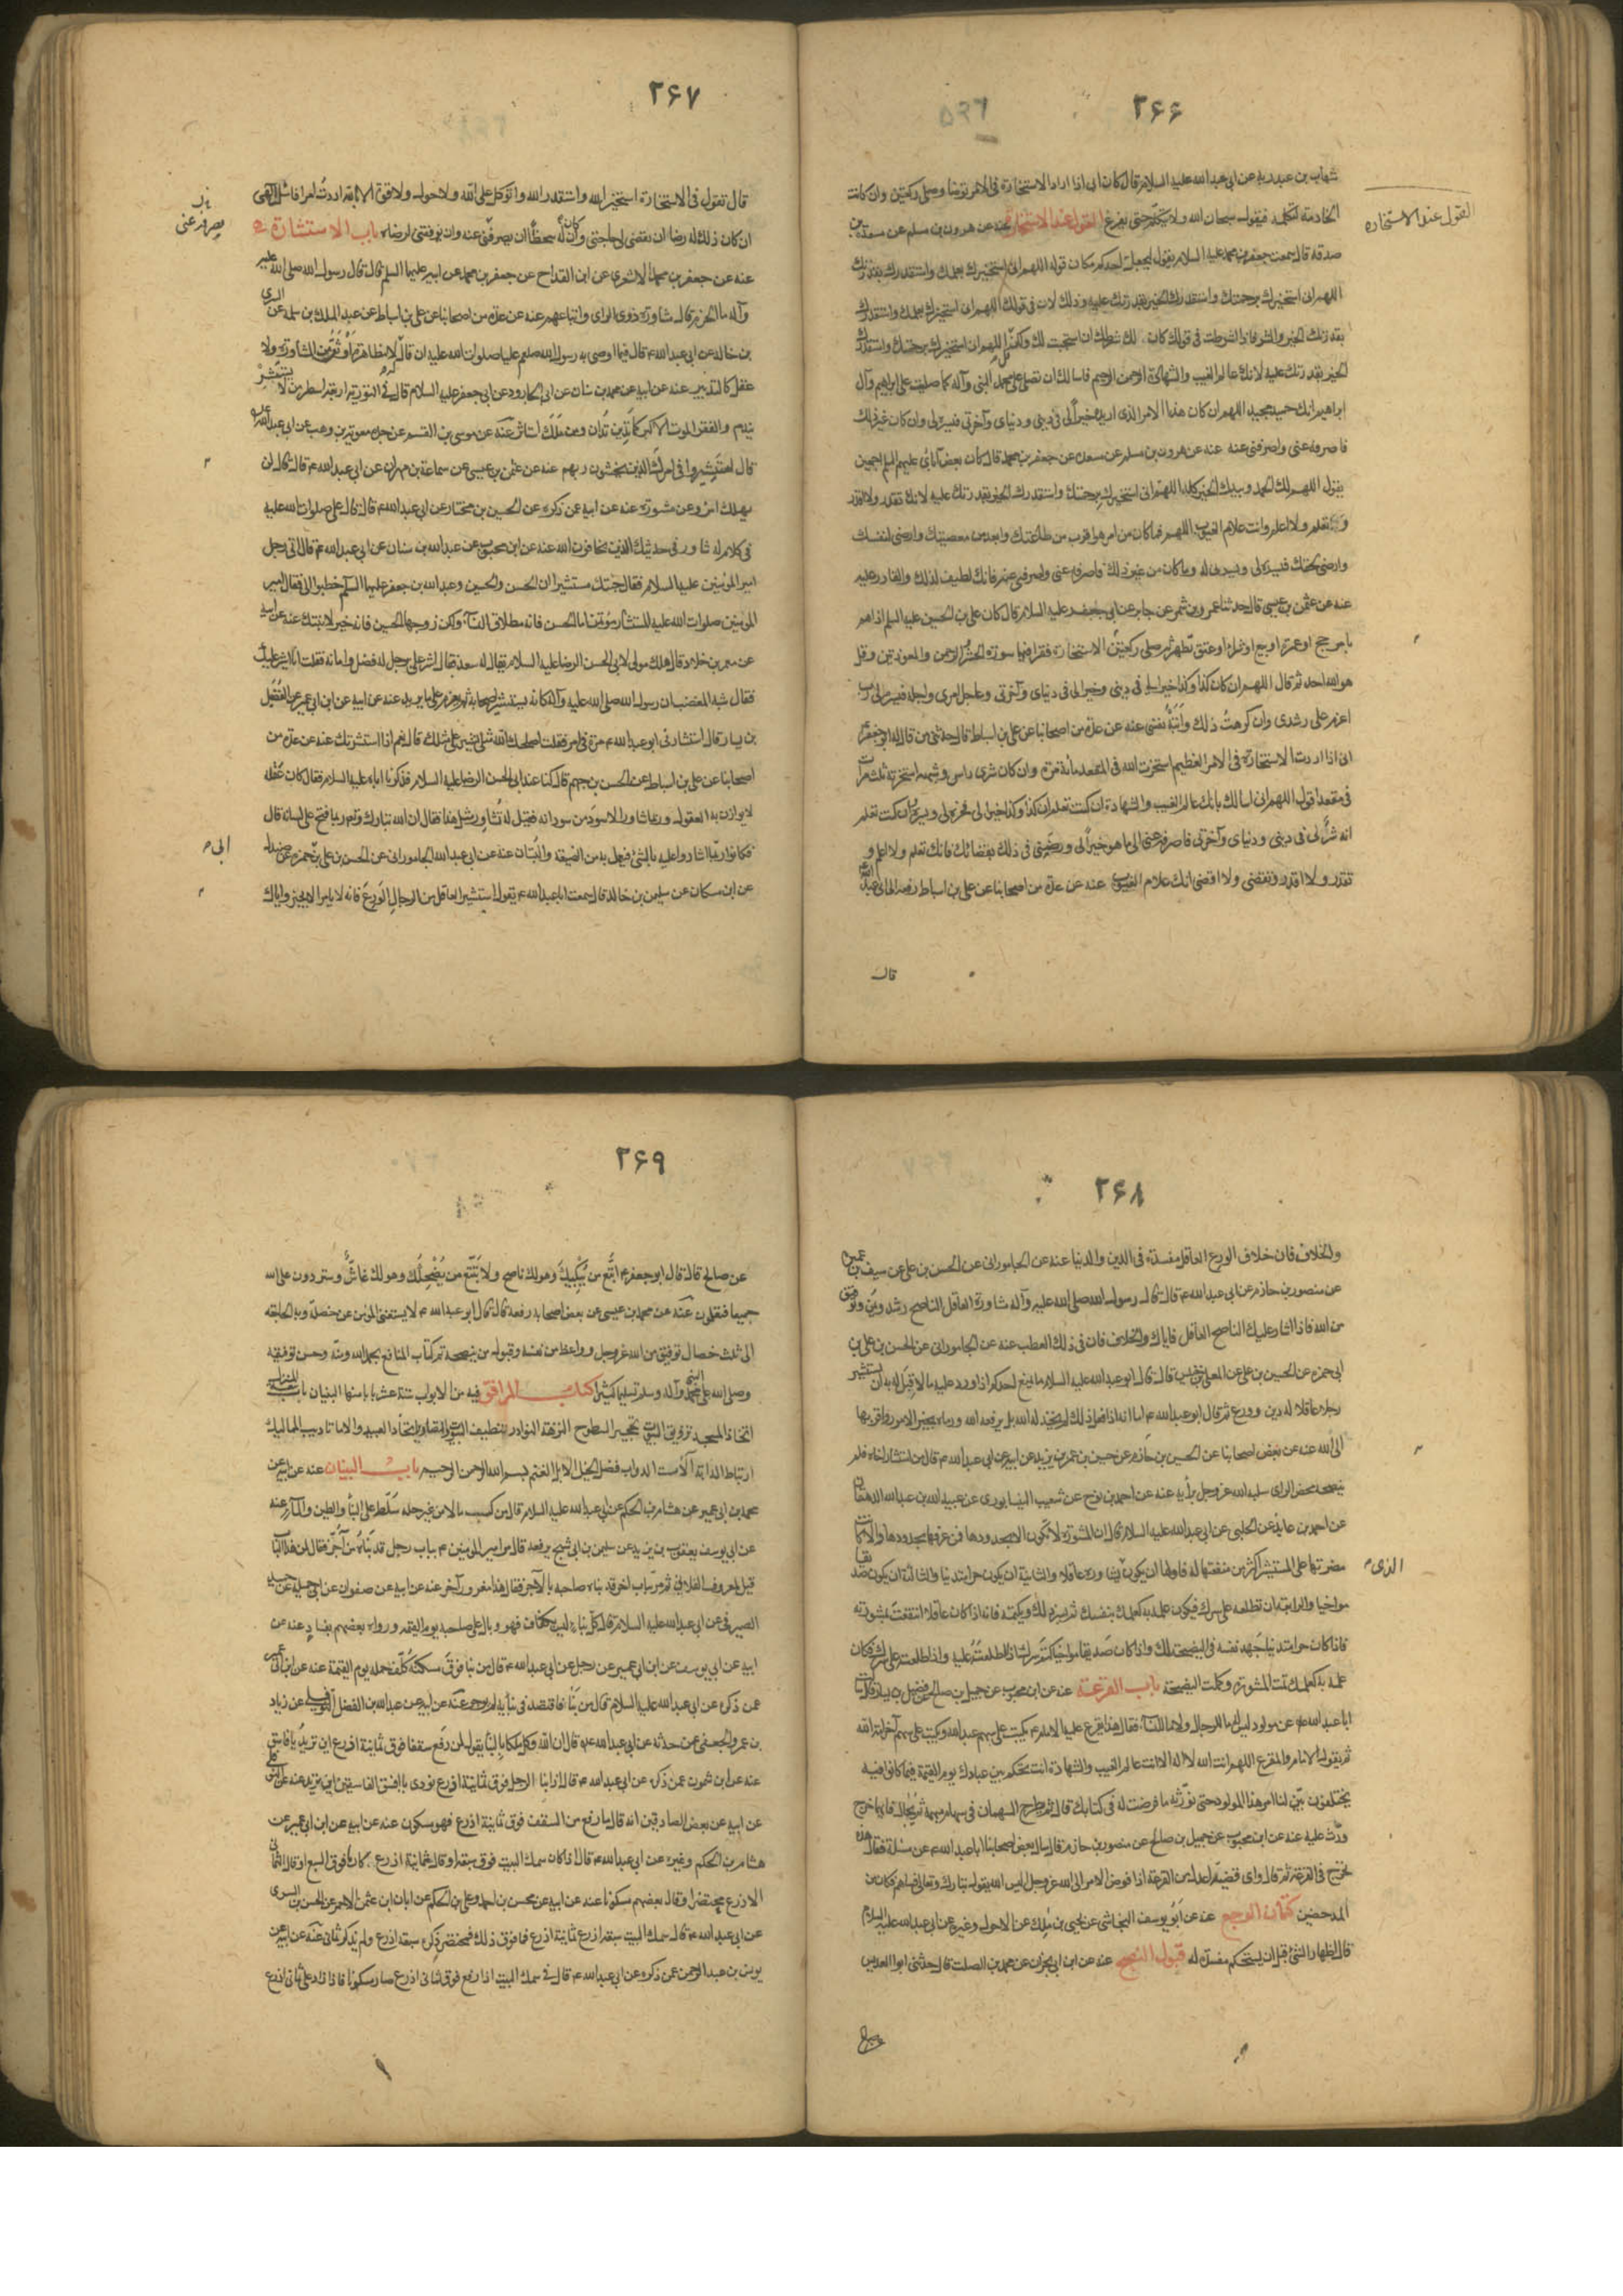 ۲۶۶
شهاب بن عبد ربه عن ابى عبدالله عليه السلام قال كان ابى اذا اراد الاستخارة فى الامر توضا وصلى ركعتين وان كانت
الخادمة لتكلمه فيقول سبحان الله ولا يتكلم حتى يفرغ القول عند الاستخارة عنه عن هرون بن مسلم عن مسعدة بن
القول عند الاستخاره
صدقة قال سمعت جعفر بن محمد عليه السلام يقول ليجعل احدكم مكان قوله اللهم انى استخيرك بعلمك واستقدرك بقدرتك
اللهم انى استخيرك برحمتك واستقدرك الخير بقدرتك عليه وذلك لان فى قولك اللهم انى استخيرك بعلمك واستقدرك
بقدرتك الخير والشر فاذا اشترطت فى قولك كان لك شرطك ان استجيب لك ولكن قل اللهم انى استخيرك برحمتك واستقدرك
الخير بقدرتك عليه لانك عالم الغيب والشهادة الرحمن الرحيم فاسالك ان تصلى على محمد النبى وآله كما صليت على ابراهيم وآل
ابراهيم انك حميد مجيد اللهم ان كان هذا الامر الذى اريده خيرا لى فى دينى ودنياى وآخرتى فيسره لى وان كان غير ذلك
فاصرفه عنى واصرفنى عنه عنه عن هرون بن مسلم عن مسعدة عن جعفر بن محمد قال كان بعض آبائى عليهم السلم اجمعين
يقول اللهم لك الحمد وبيدك الخير كله اللهم انى استخيرك برحمتك واستقدرك الخير بقدرتك عليه لانك تقدر ولا اقدر
وتعلم ولا اعلم وانت علام الغيوب اللهم فما كان من امر هو اقرب من طاعتك وابعد من معصيتك وارضى لنفسك
وارضى لحقك فيسره لى ويسرنى له وما كان من غير ذلك فاصرفه عنى واصرفنى عنه فانك لطيف لذلك والقادر عليه
عنه عن عثمن بن عيسى قال حدثنا عمرو بن شمر عن جابر عن ابى جعفر عليه السلام قال كان على بن الحسين عليه السلم اذا هم
بامر حج او عمرة او بيع او شراء او عتق تطهر ثم صلى ركعتين الاستخارة فقرا فيهما سورة الحشر والرحمن والمعوذتين وقل
هو الله احد ثم قال اللهم ان كان كذا وكذا خيرا لى فى دينى وخيرا لى فى دنياى وآخرتى وعاجل امرى وآجله فيسره لى رب
اعزم على رشدى وان كرهت ذلك وابته نفسى عنه عن عدة من اصحابنا عن على بن اسباط قال حدثنى من قال له ابو جعفر
انى اذا اردت الاستخارة فى الامر العظيم استخرت الله فى المقعد مائة مرة وان كان شرى راس وشبهه استخرته ثلث مرات
فى مقعد اقول اللهم انى اسالك بانك عالم الغيب والشهادة ان كنت تعلم ان كذا وكذا خير لى فخره لى ويسره وان كنت تعلم
انه شر لى فى دينى ودنياى وآخرتى فاصرفه عنى الى ما هو خير لى ورضنى فى ذلك بقضائك فانك تعلم ولا اعلم و
تقدر ولا اقدر وتقضى ولا اقضى انك علام الغيوب عنه عن عدة من اصحابنا عن على بن اسباط رفعه الى ابى عبدالله
قال
۲۶۷
قال تقول فى الاستخارة استخير الله واستقدر الله واتوكل على الله ولا حول ولا قوة الا بالله اردت امرا فاسال الهى
ان كان ذلك له رضا ان يقضى لى حاجتى وان كان له سخطا ان يصرفنى عنه وان يوفقنى لرضاه باب الاستشارة
عنه عن جعفر بن محمد الاشعرى عن ابن القداح عن جعفر بن محمد عن ابيه عليهما السلم قال قال رسول الله صلى الله عليه
وآله ما الحزم قال مشاورة ذوى الراى واتباعهم عنه عن عدة من اصحابنا عن على بن اسباط عن عبد الملك بن سلمة عن السرى
بن خالد عن ابى عبدالله ع قال فيما اوصى به رسول الله صلعم عليا صلوات الله عليه ان قال لا مظاهرة اوثق من المشاورة ولا
عقل كالتدبير عنه عن ابيه عن محمد بن سنان عن ابى الجارود عن ابى جعفر عليه السلام قال فى التوزية اربعة اسطر من لا يستشر
يندم والفقر الموت الاكبر كما تدين تدان ومن ملك استاثر عنه عن موسى بن القسم عن جده معوية بن وهب عن ابى عبدالله
قال استشيروا فى امرك الذين يخشون ربهم عنه عن عثمن بن عيسى عن سماعة بن مهران عن ابى عبدالله ع قال قال لن
يهلك امرؤ عن مشورة عنه عن ابيه عن ذكره عن الحسين بن مختار عن ابى عبدالله ع قال قال على صلوات الله عليه
فى كلام له شاور فى حديثك الذين يخافون الله عنه عن ابن محبوب عن عبدالله بن سنان عن ابى عبدالله ع قال اتى رجل
امير المؤمنين عليه السلام فقال جئتك مستشيرا ان الحسن والحسين وعبدالله بن جعفر عليهما السلم خطبوا الى فقال امير
المؤمنين صلوات الله عليه المستشار مؤتمن اما الحسن فانه مطلاق النساء ولكن زوجها الحسين فانه خير لابنتك عنه عن ابيه
عن معمر بن خلاد قال هلك مولى لابى الحسن الرضا عليه السلام يقال له سعد فقال اشر على برجل له فضل وامانة فقلت انا اشير عليك
فقال شبه المغضب ان رسول الله صلى الله عليه وآله كان يستشير اصحابه ثم يعزم على ما يريد عنه عن ابيه عن ابن ابى عمير عن الفضيل
بن يسار قال استشارنى ابو عبدالله ع مرة فى امر فقلت اصلحك الله مثلى يشير على مثلك قال نعم اذا استشرتك عنه عن عدة من
اصحابنا عن على بن اسباط عن الحسن بن جهم قال كنا عند ابى الحسن الرضا عليه السلام فذكرنا اباه عليه السلام فقال كان عقله
لا يوازن به العقول وربما شاور الاسود من سودانه فقيل له تشاور مثل هذا فقال ان الله تبارك وتعالى ربما فتح على لسانه قال
فكانوا ربما اشاروا عليه بالشئ فيعمل به من الضيعة والبستان عنه عن ابى عبدالله الجامورانى عن الحسن بن على بن حمزة عن صندل
عن ابن مسكان عن سليمن بن خالد قال سمعت ابا عبدالله ع يقول استشير العاقل من الرجال الورع فانه لا يامر الا بخير واياك
۲۶۸
والخلاف فان خلاف الورع العاقل مفسدة فى الدين والدنيا عنه عن الجامورانى عن الحسن بن على عن سيف بن عميرة
عن منصور بن حازم عن ابى عبدالله ع قال قال رسول الله صلى الله عليه وآله مشاورة العاقل الناصح رشد ويمن وتوفيق
من الله فاذا اشار عليك الناصح العاقل فاياك والخلاف فان فى ذلك العطب عنه عن الجامورانى عن الحسن بن على بن
ابى حمزه عن الحسين بن على عن المعلى بن خنيس قال قال ابو عبدالله عليه السلام ما يمنع احدكم اذا ورد عليه ما لا قبل له به ان يستشير
رجلا عاقلا له دين وورع ثم قال ابو عبدالله ع اما انه اذا فعل ذلك لم يخذله الله بل يرفعه الله ورماه بخير الامور واقربها
الى الله عنه عن بعض اصحابنا عن الحسين بن حازم عن حسين بن عمر بن يزيد عن ابيه عن ابى عبدالله ع قال من استشار اخاه فلم
ينصحه محض الراى سلبه الله عز وجل رأيه عنه عن احمد بن نوح عن شعيب النيسابورى عن عبيد الله بن عبدالله الدهقان
عن احمد بن عائذ عن الحلبى عن ابى عبدالله عليه السلام قال ان المشورة لا تكون الا بحدودها فمن عرفها بحدودها والا كانت
مضرتها على المستشير اكثر من منفعتها له فاولها ان يكون الذى يشاوره عاقلا والثانية ان يكون حرا متدينا والثالثة ان يكون صديقا
مواخيا والرابعة ان تطلعه على سرك فيكون علمه به كعلمك بنفسك ثم يسر ذلك ويكتمه فانه اذا كان عاقلا انتفعت بمشورته
فاذا كان حرا متدينا جهد نفسه فى النصيحة لك واذا كان صديقا مواخيا كتم سرك اذا اطلعته عليه واذا اطلعته على سرك فكان
علمه به كعلمك تمت المشورة وكملت النصيحة باب القرعة عنه عن ابن محبوب عن جميل بن صالح عن فضيل بن يسار قال سالت
ابا عبدالله ع عن مولود ليس له ما للرجال ولا ما للنساء فقال هذا يقرع عليه الامام يكتب على سهم عبدالله ويكتب على سهم آخر امة الله
ثم يقول الامام او المقرع اللهم انت الله لا اله الا انت عالم الغيب والشهادة انت تحكم بين عبادك يوم القيمة فيما كانوا فيه
يختلفون بين لنا امر هذا المولود حتى نورثه ما فرضت له فى كتابك قال ثم يطرح السهمان فى سهام مبهمة ثم يجال فايهما خرج
ورث عليه عنه عن ابن محبوب عن جميل بن صالح عن منصور بن حازم قال سال بعض اصحابنا ابا عبدالله ع عن مسئلة فقال هذه
تخرج فى القرعة ثم قال واى قضية اعدل من القرعة اذا فوض الامر الى الله عز وجل اليس الله يقول تبارك وتعالى فساهم فكان من
المدحضين كتمان الوجع عنه عن ابى يوسف النجاشى عن يحيى بن ملك عن الاحول وغيره عن ابى عبدالله عليه السلام
قال اظهار الشئ قبل ان يستحكم مفسدة له قبول النصح عنه عن ابن ابى نجران عن محمد بن الصلت قال حدثنى ابو العديس
۲۶۹
عن صالح قال قال ابو جعفر ع اتبع من يبكيك وهو لك ناصح ولا تتبع من يضحكك وهو لك غاش وستردون على الله
جميعا فتعلمون عنه عن محمد بن عيسى عن بعض اصحابه رفعه قال قال ابو عبدالله ع لا يستغنى المؤمن عن خصلة وبه الحاجة
الى ثلث خصال توفيق من الله عز وجل وواعظ من نفسه وقبول من ينصحه تم كتاب المنافع بحمد الله ومنه وحسن توفيقه
وصلى الله على محمد النبى وآله وسلم تسليما كثيرا كتاب المرافق فيه من الابواب ستة عشر بابا منها البنيان باب
اتخاذ المسجد تزويق البيوت تحجير السطوح النزهة النوادر تنظيف البيوت اتخاذ العبيد والاماء تاديب المماليك
ارتباط الدابة الدواب فضل الخيل الابل الغنم بسم الله الرحمن الرحيم باب البنيان عنه عن ابيه عن
محمد بن ابى عمير عن هشام بن الحكم عن ابى عبدالله عليه السلام قال من كسب مالا من غير حله سلط على البناء والطين والماء عنه
عن ابى يوسف يعقوب بن يزيد عن سليمن بن ابى شيخ يرفعه قال مر امير المؤمنين ع بباب رجل قد بناه من آجر فقال لمن هذا الباب
قيل لمغرور الفلانى ثم مر بباب آخر قد بناه صاحبه بالآجر فقال هذا مغرور آخر عنه عن ابيه عن صفوان عن ابى جميلة عن حميد
الصيرفى عن ابى عبدالله عليه السلام قال كل بناء ليس بكفاف فهو وبال على صاحبه يوم القيمة ورواه بعضهم بفساد عنه عن
ابيه عن ابى يوسف عن ابن ابى عمير عن رجل عن ابى عبدالله ع قال من بنا فوق مسكنه كلف حمله يوم القيمة عنه عن ابن ابى عمير
عمن ذكره عن ابى عبدالله عليه السلام قال من بنا فاقتصد فى بنائه لم يوجر عنه عن ابيه عن عبدالله بن الفضل النوفلى عن زياد
بن عمرو الجعفى عمن حدثه عن ابى عبدالله ع قال ان الله وكل ملكا بالبناء يقول لمن رفع سقفا فوق ثمانية اذرع اين تريد يا فاسق
عنه عن ابن شمون عمن ذكره عن ابى عبدالله ع قال اذا بنا الرجل فوق ثمانية اذرع نودى يا افسق الفاسقين اين تريد عنه عن
عن ابيه عن بعض الصادقين انه قال ما رفع من السقف فوق ثمانية اذرع فهو مسكون عنه عن ابيه عن ابن ابى عمير عن
هشام بن الحكم وغيره عن ابى عبدالله ع قال اذا كان سمك البيت فوق سبعة او قال ثمانية اذرع كان ما فوق السبع او قال الثمانى
الاذرع محتضرا وقال بعضهم مسكونا عنه عن ابيه عن محسن بن احمد وعلى بن الحكم عن ابان ابن عثمن الاحمر عن الحسن بن السرى
عن ابى عبدالله ع قال سمك البيت سبعة اذرع ثمانية اذرع فما فوق ذلك فمحتضر ذكر سبعة اذرع ولم يذكر ثمانى عنه عن ابيه عن
يونس بن عبد الرحمن عمن ذكره عن ابى عبدالله ع قال فى سمك البيت اذا رفع فوق ثمانى اذرع صار مسكونا فاذا زاد على ثمانى اذرع